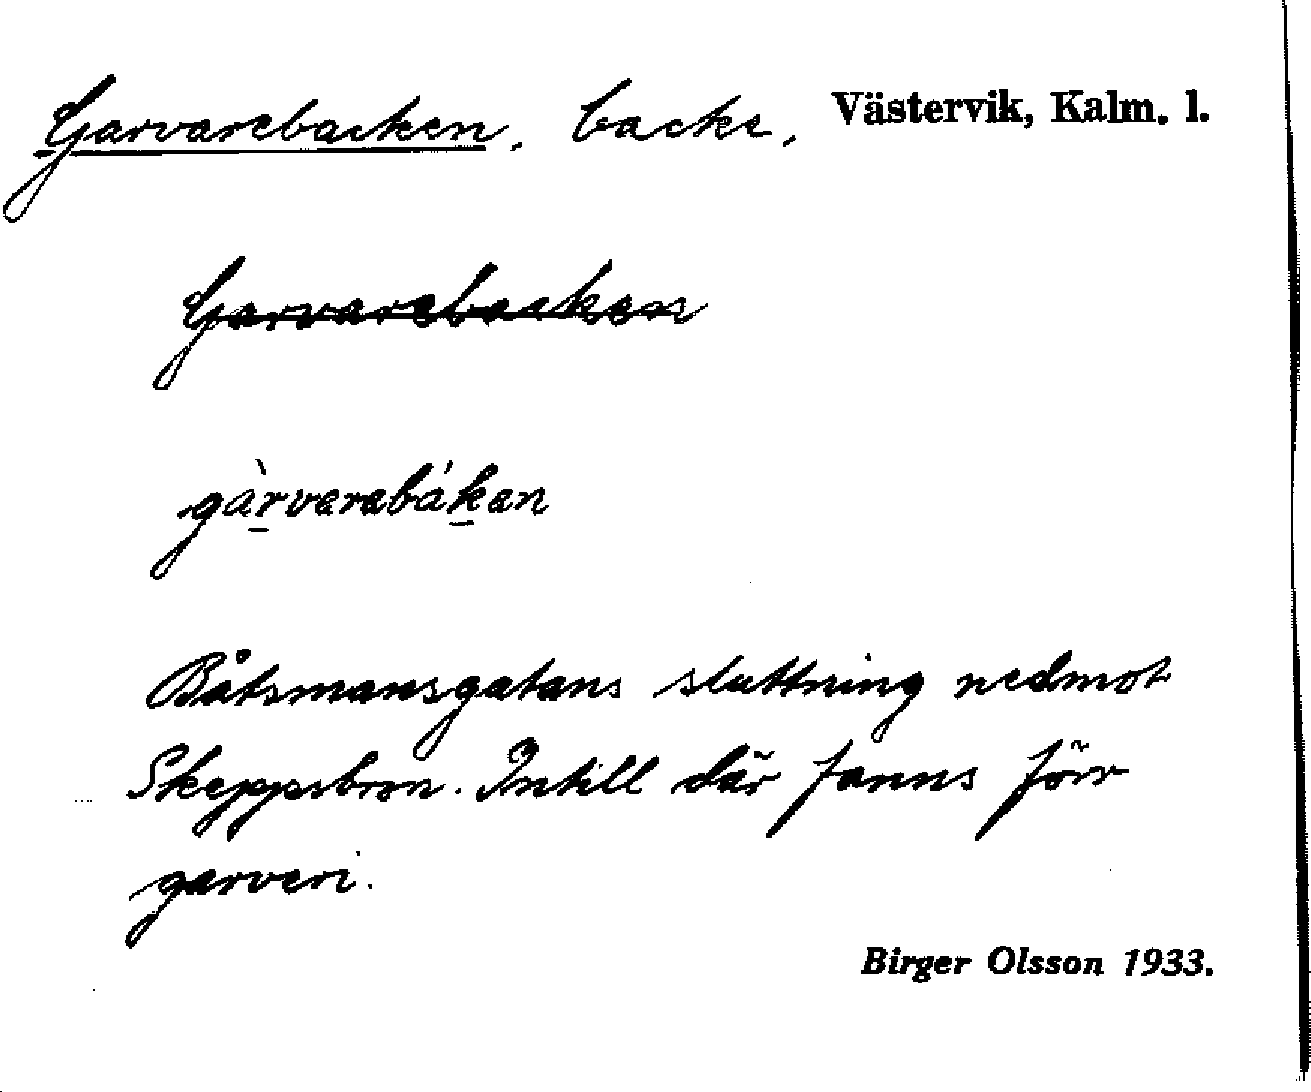 Garvarebacken, backe, Västervik, Kalm. l.
Garvarebacken
gàrvarebáken
Båtsmansgatans sluttning nedmot
Skeppsbron. Intill där fanns förr
garveri.
Birger Olsson 1933.